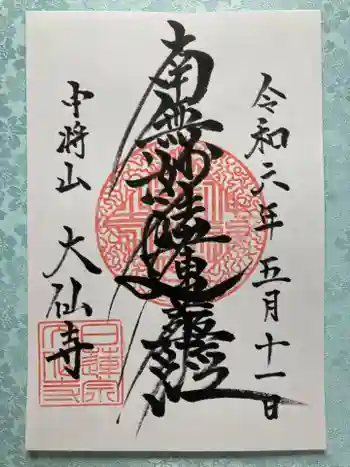 令和六年五月十一日
南無妙法蓮華経
中将山 大仙寺
日蓮宗